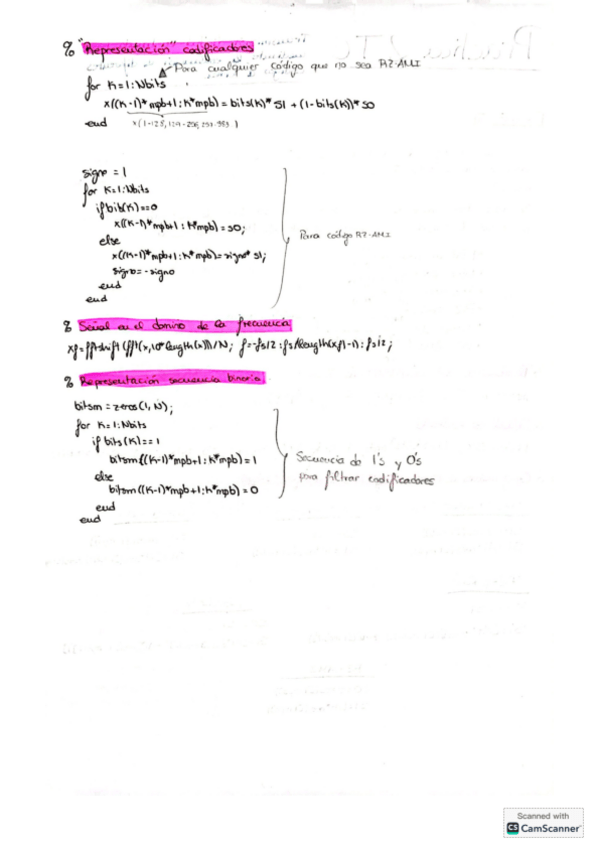 % "Representación" codificadores
Para cualquier código que no sea RZ-AMI
for K=1:Nbits
x((K-1)*mpb+1:K*mpb) = bits(K)* S1 + (1-bits(K))* S0
end
signo = 1
for K=1:Nbits
if bits(K)==0
x((K-1)*mpb+1:K*mpb) = S0;
else
x((K-1)*mpb+1:K*mpb) = signo* S1;
signo = -signo
end
end
Para código RZ-AMI
% Señal en el dominio de la frecuencia
xf = fftshift (fft(x,10*length(x)))/N; f=-fs/2:fs/(length(xf)-1):fs/2;
% Representación secuencia binaria
bitsm = zeros(1,N);
for K=1:Nbits
if bits(K)==1
bitsm((K-1)*mpb+1:K*mpb) = 1
else
bitsm((K-1)*mpb+1:K*mpb) = 0
end
end
Secuencia de 1's y 0's
para filtrar codificadores
Scanned with
CS CamScanner